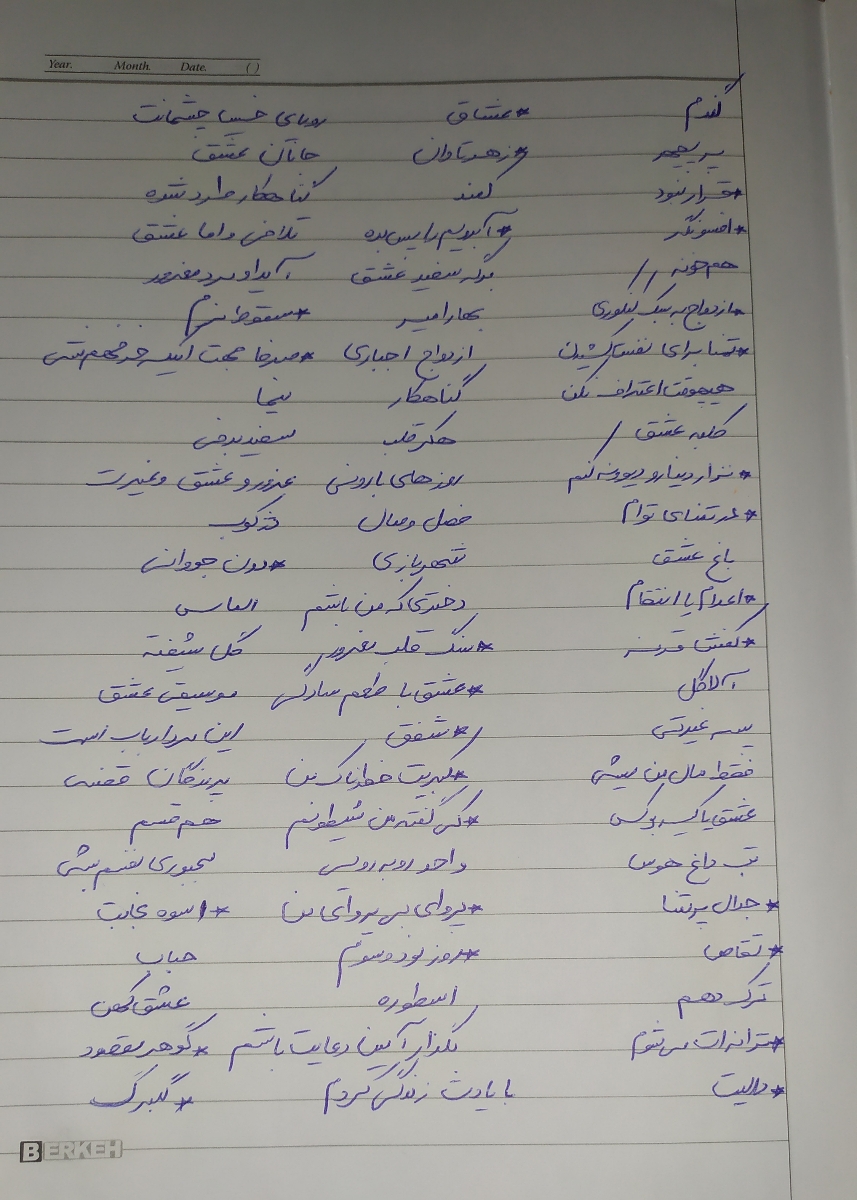 Year. Month. Date. ( )
گندم *عشاق رویای خیس چشمانت
پریچهر *زهر تاوان جانان عشق
*قرار نبود کمند گناهکار وارد شده
*افسونگر *آبرویم را پس بده تلافی و اما عشق
هم خونه // برکه سفید عشق آیدا و مرد مغرور
*ازدواج به سبک کنکوری بهار امیر *سقوط نرم
*تمنا برای نفس کشیدن ازدواج اجباری *صرفا جهت اینکه خر فهم شی
هیچوقت اعتراف نکن گناهکار نیما
کلبه عشق / هکر قلب سفید برفی
*نزار دنیارو دیوونه کنم روزهای بارونی غرور و عشق و غیرت
*در تمنای توام فصل وصال
باغ عشق شهربازی *دون ژوان
*اعدام یا انتقام دختری که من باشم الماس
*کفش قرمز *سنگ قلب مغرور گل شیفته
آلاگل *عشق با طعم سادگی موسیقی عشق
پسر غیرتی *شفق این مرد ارباب است
فقط مال من میشی *کبریت خطرناک من پرندگان قفسی
عشق یا کیسه بوکس *کی گفته من شیطونم هم قسم
تب داغ هوس واحد روبه رویی مجبوری نفسم بشی
*جدال پرتمنا *پروای بی پروای من *اسوه نجابت
*تقاص *روز نود و سوم حباب
ترک دهم اسطوره عشق کهن
*ترانه ات می شوم بگذار آمین دعایت باشم *گوهر مقصود
*دالیت با یادت زندگی کردم *گلبرگ
BERKEH